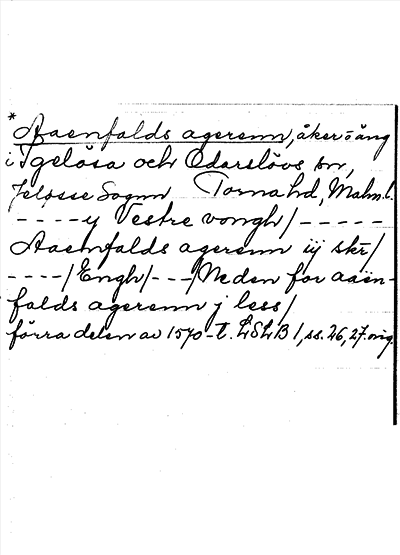 * Aaenfalds agerenn, åker o äng
i Igelösa och Odarslövs snr,
Jelösse Sognn Torna hd, Malm. l.
- - - - y Vestre vongh / - - - - -
Aaenfalds agerenn iij skr /
- - - - / Engh / - - - / Neden for aaen-
falds agerenn j less /
förra delen av 1570-t. LSLB 1, ss. 26, 27. orig.